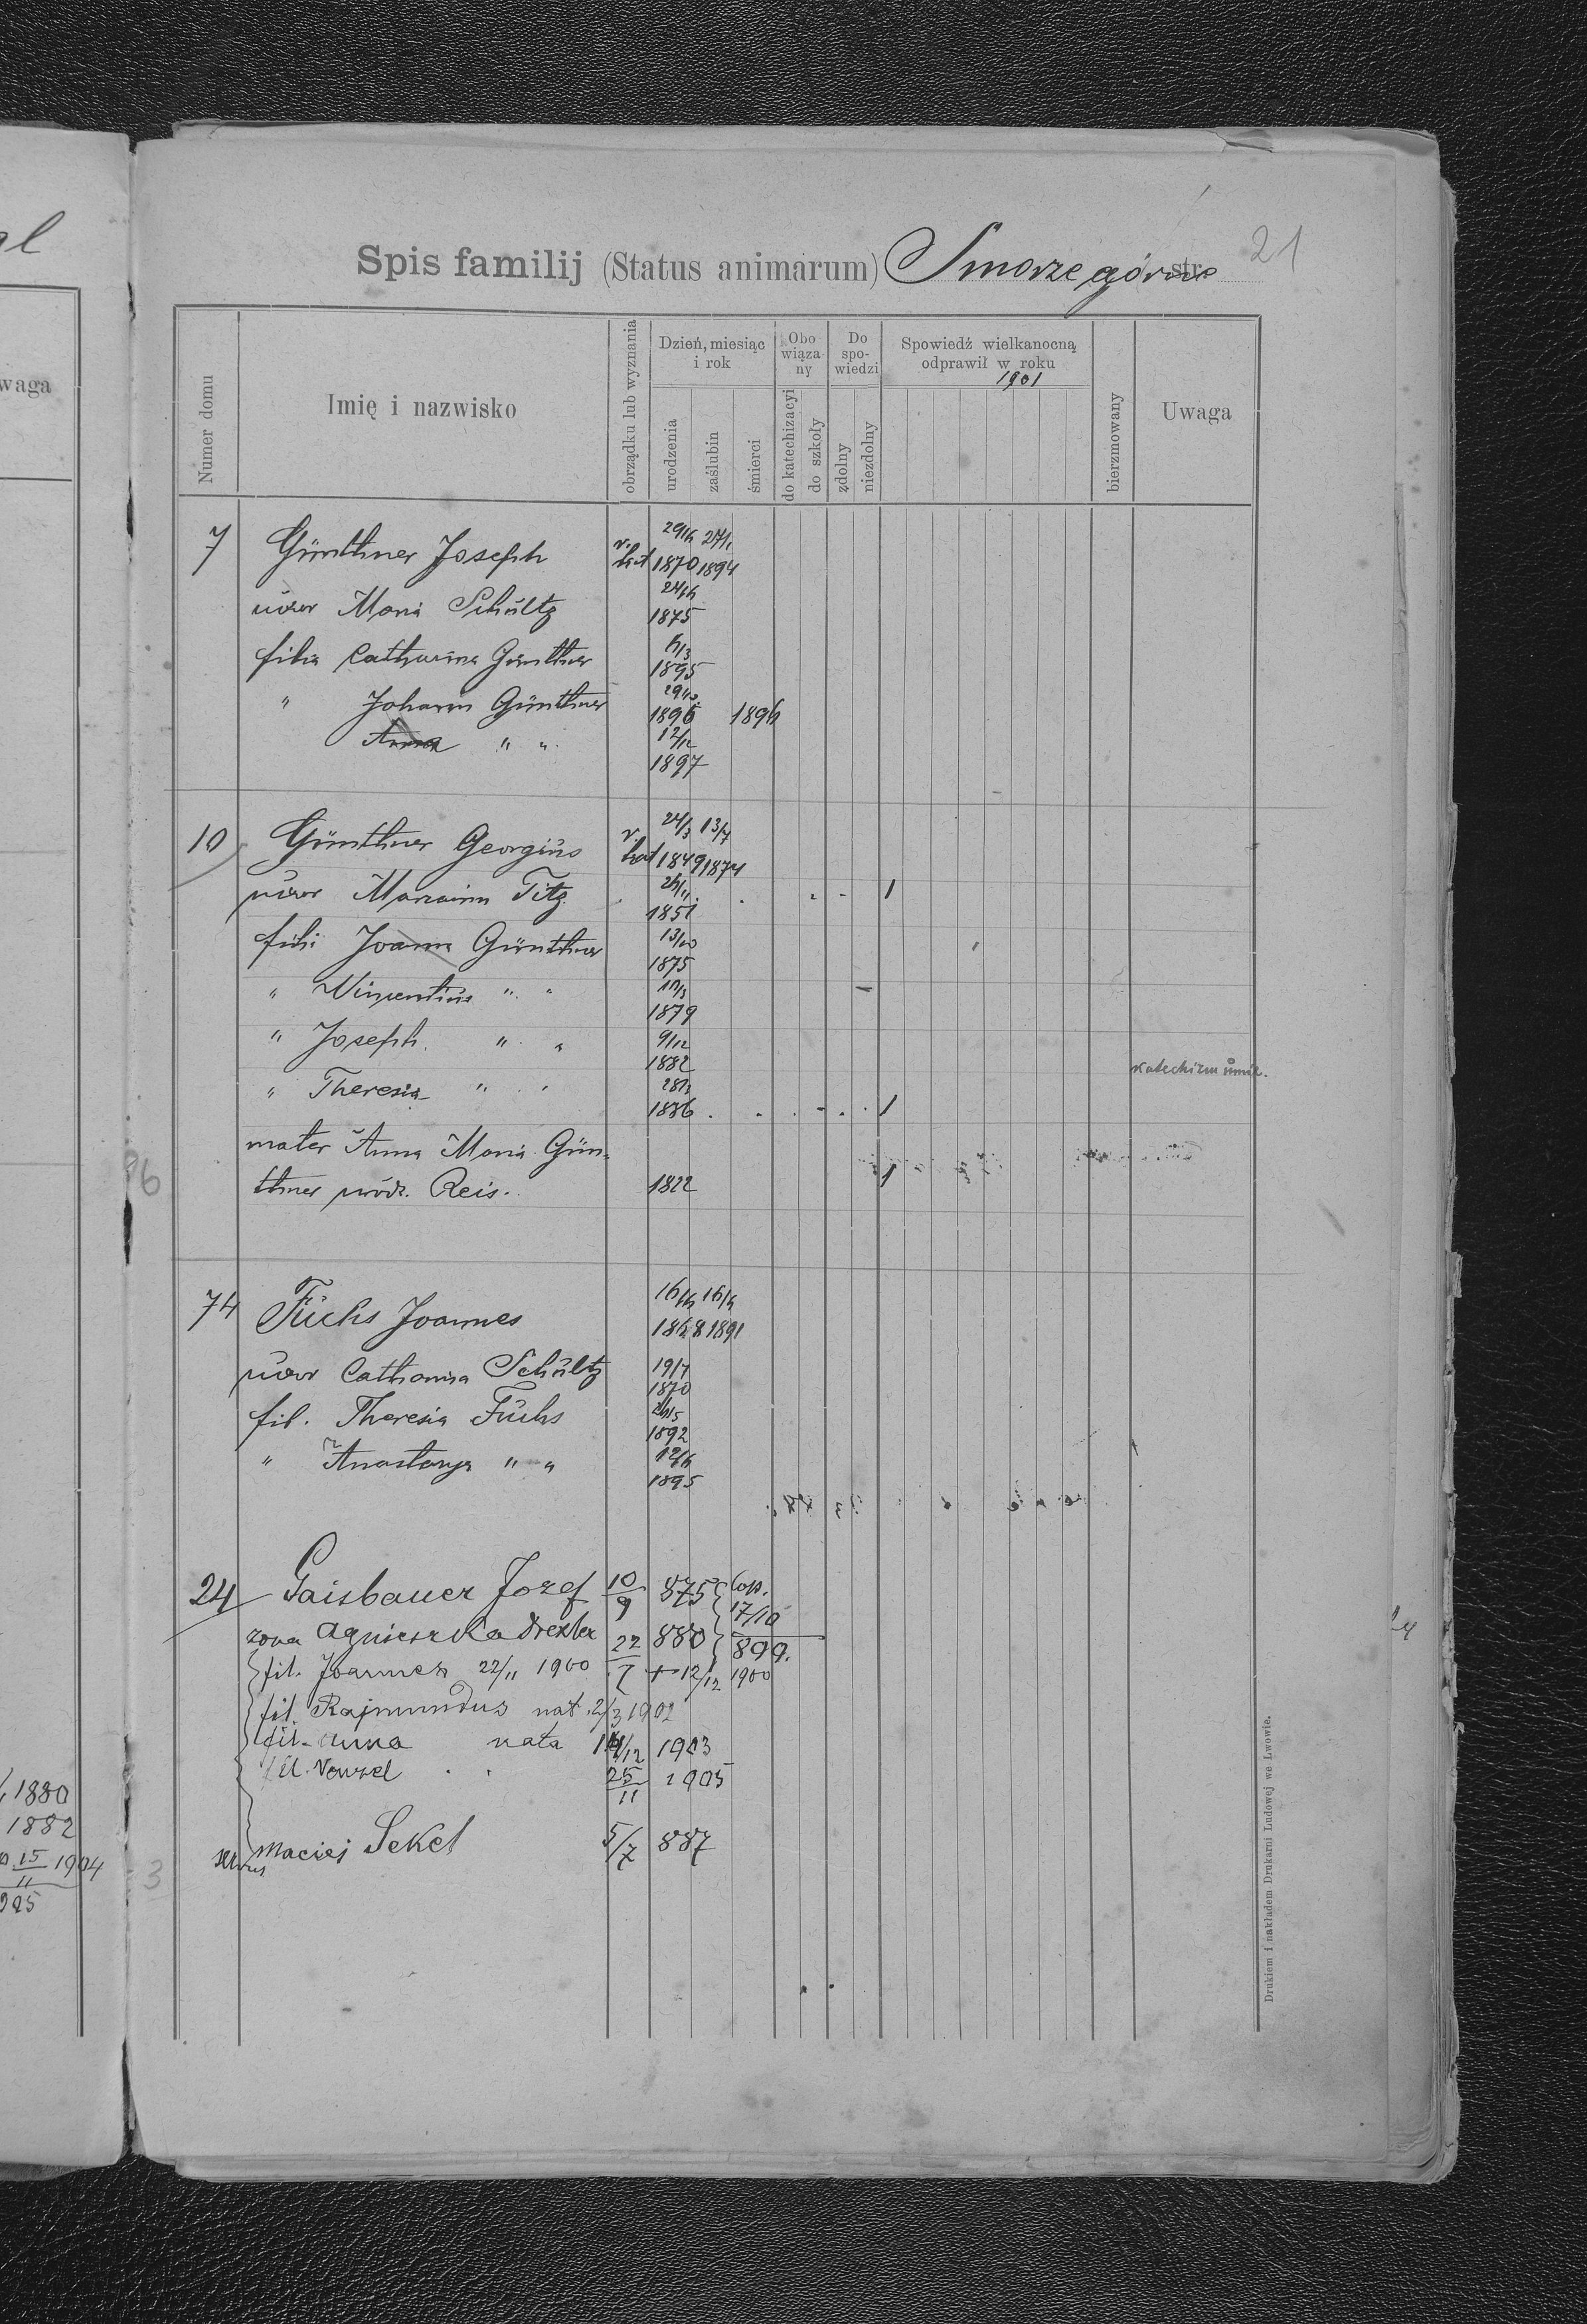 al
waga
1880
1882
15/11 1904
Spis familij (Status animarum) Smorze górne str. 21
Numer domu
Imię i nazwisko
obrządku lub wyznania
Dzień, miesiąc i rok
urodzenia
zaślubin
śmierci
Obowiązany
do katechizacyi
do szkoły
Do spowiedzi
zdolny
niezdolny
Spowiedź wielkanocną odprawił w roku
1901
bierzmowany
Uwaga
7 Günthner Joseph r. kat 1870 1894
uxor Maria Schültz 1875
filia Catharina Günthner 1895
" Johann Günthner 1896 1896
Anna " " 12/12 1897
10 Günthner Georgius r. kat 24/3 1849 13/7 1874
uxor Marianna Titz 1851 1
fili Joanna Günthner 13/10 1875
" Vinzentius " " 1879
" Joseph " " 9/12 1882
" Theresia " " 1886 1 katechizm
mater Anna Maria Gün-
thner Reis. 1822 1
74 Füchs Joannes 1868 1891
uxor Catharina Schültz 19/7 1870
fil. Theresia Füchs 1892
" Anastazya " " 1895
24 Gaisbauer Jozef 10/9 875 Cop. 17/10
żona Agnieszka Drexler 22/7 880 899.
fil. Joannes 22/11 1900 + 12/12 1900
fil. Rajmundus nat. 2/3 1902
fil. Anna nata 14/12 1903
fil. Venzel " 25/11 1905
servus Maciej Sekel 5/7 887
Drukiem i nakładem Drukarni Ludowej we Lwowie.